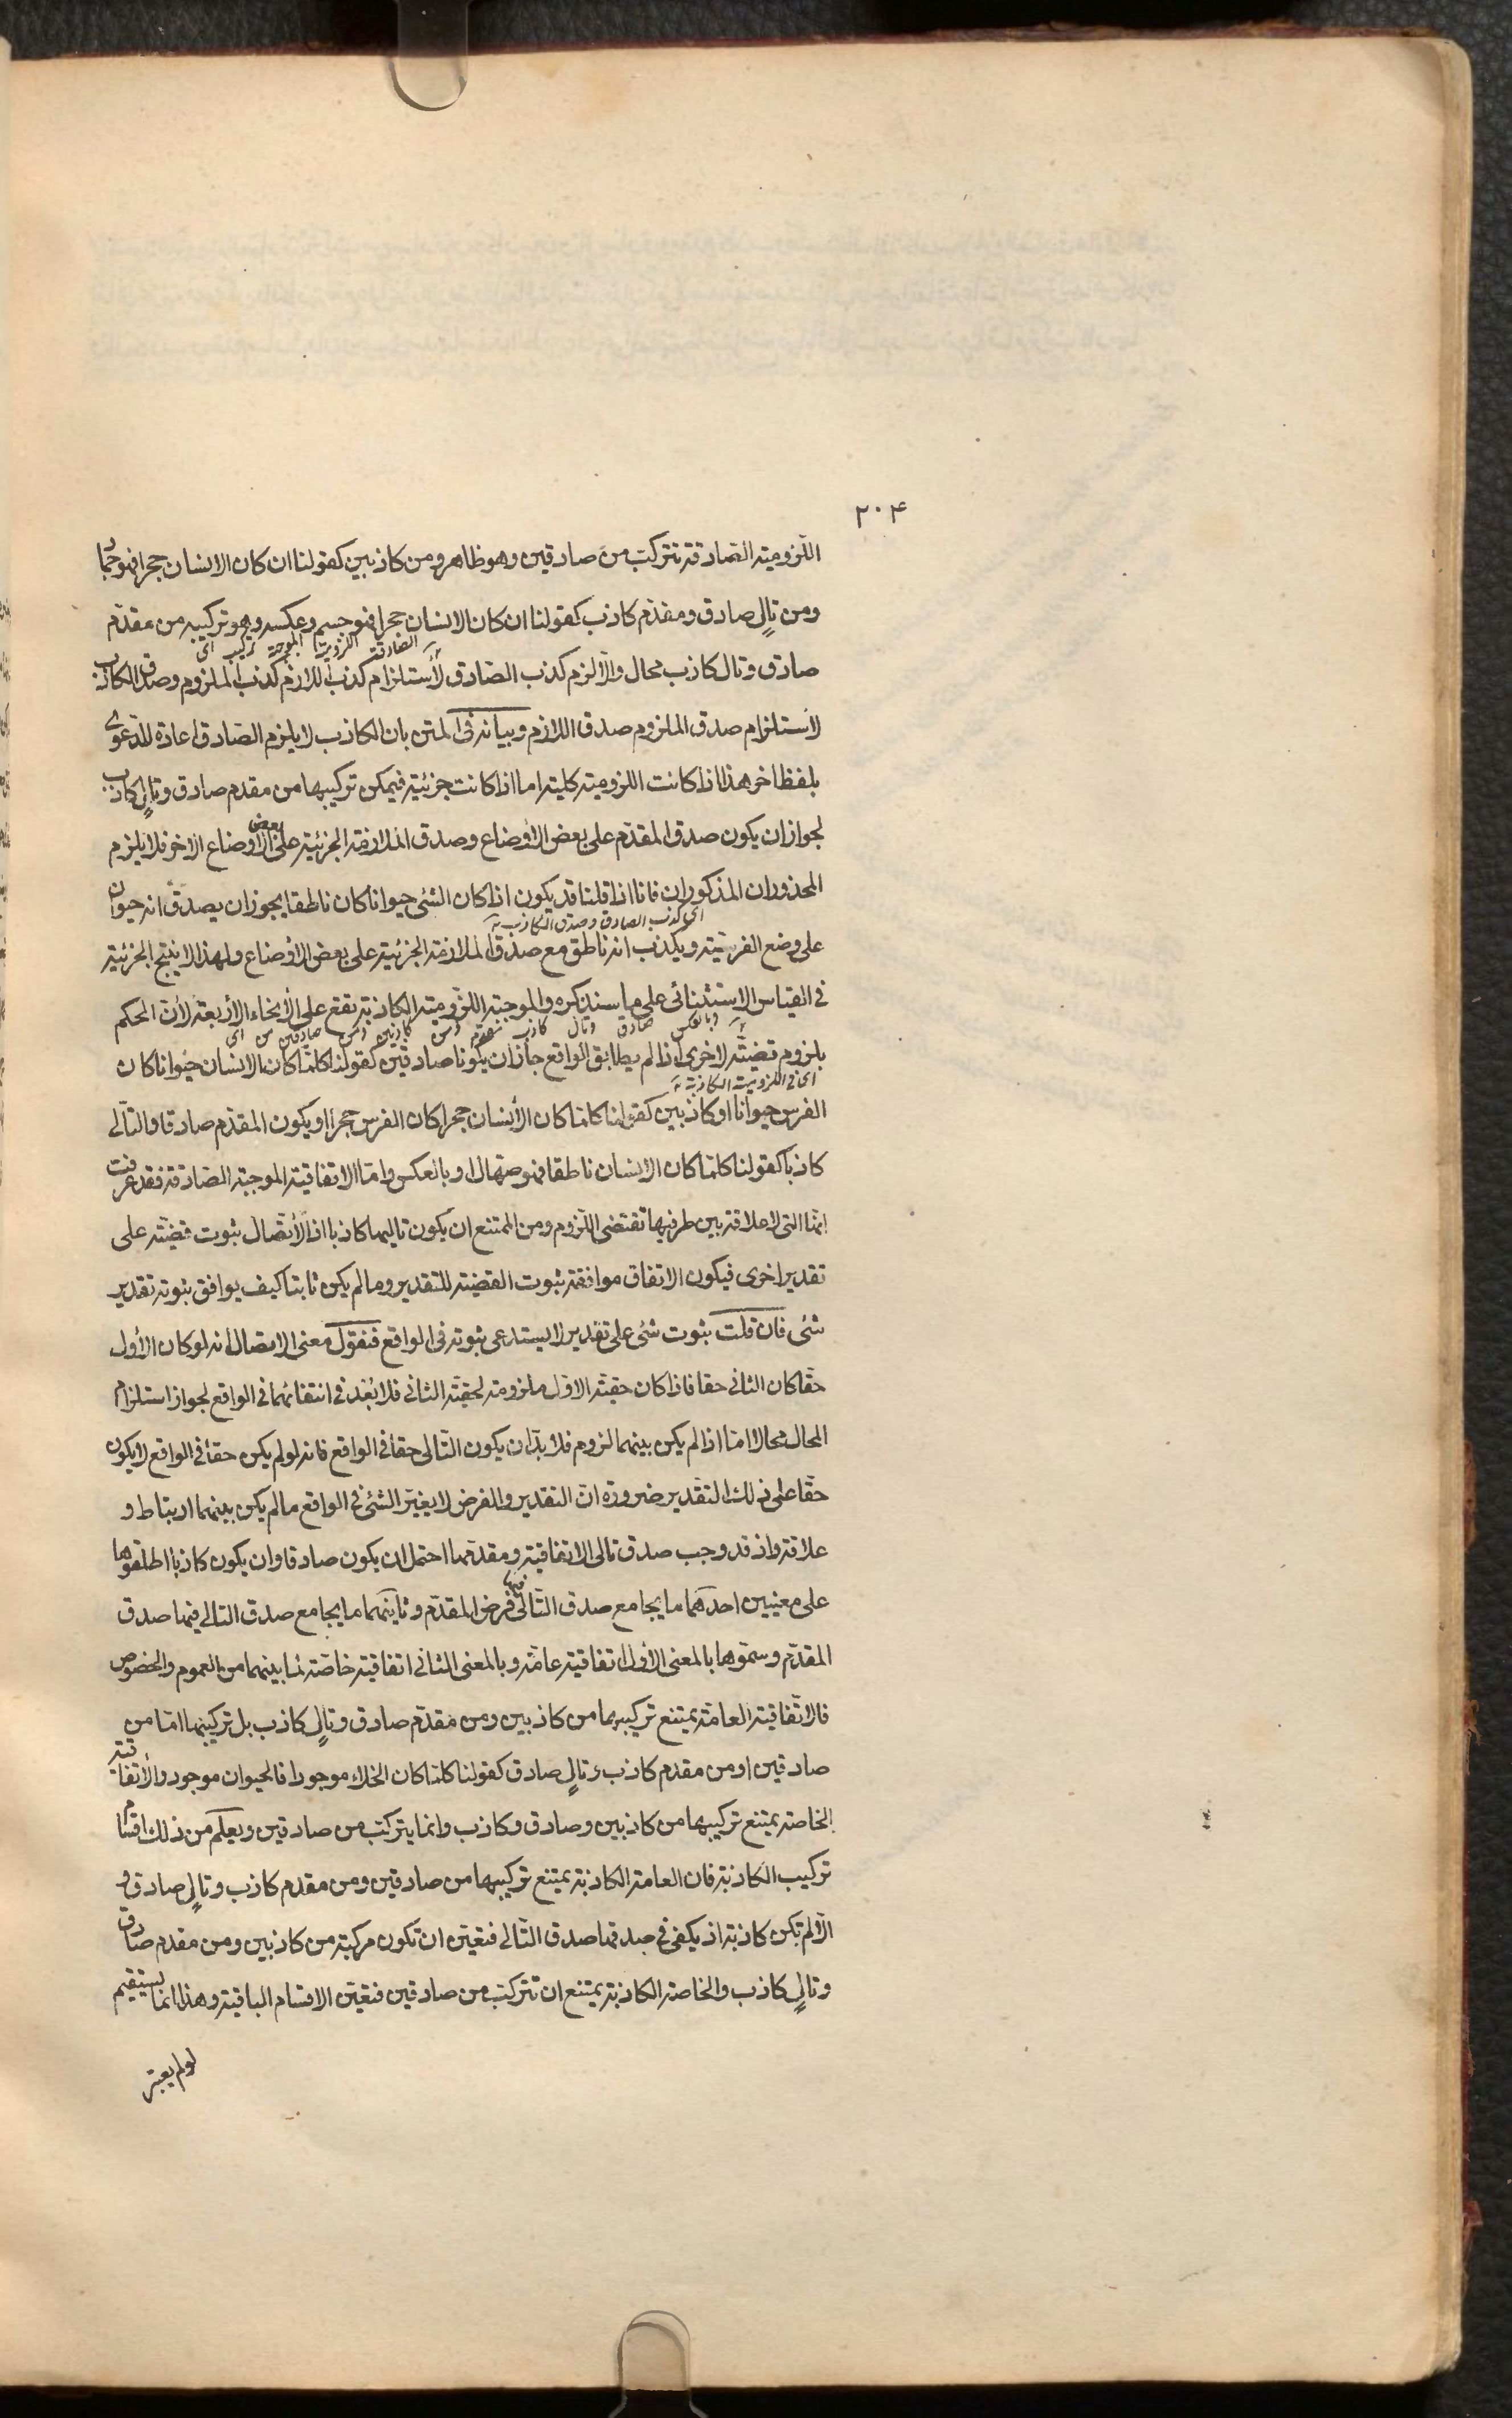 ٢٠۴
اللّزوميّة الصّادقة تتركّب من صادقين وهو ظاهر ومن كاذبين كقولنا ان كان الانسان حجرا فهو جماد
ومن تالٍ صادق ومقدّم كاذب كقولنا ان كان الانسان حجرا فهو جسم وعكسه وهو تركيبه من مقدّم
اى تركيب الموجبة اللزومية الصادقة
صادق وتال كاذب محال والّا لزم كذب الصّادق لأستلزام كذب اللازم كذب الملزوم وصدق الكاذب
لاستلزام صدق الملزوم صدق اللازم وبيانه فى المتن بان الكاذب لا يلزم الصّادق اعادة للدّعوى
بلفظ اخر هذا اذا كانت اللزوميّة كليّة اما اذا كانت جزئيّة فيمكن تركيبها من مقدم صادق وتالٍ كاذب
لجواز ان يكون صدق المقدّم على بعض الأوضاع وصدق الملازمة الجزئيّة على بعض الأوضاع الاخر فلا يلزم
المحذوران المذكوران فانا اذا قلنا قد يكون اذا كان الشئ حيوانا كان ناطقا يجوز ان يصدق انه حيوان
اى كذب الصادق وصدق الكاذب
على وضع الفرسيّة ويكذب انه ناطق مع صدق الملازمة الجزئيّة على بعض الأوضاع ولهذا لا ينتج الجزئيّة
فى القياس الاستثنائى على ما سنذكره والموجبة اللّزوميّة الكاذبة تقع على الأنحاء الأربعة لأنّ الحكم
اى من صادقين ومن كاذبين ومن مقدم كاذب وتال صادق وبالعكس
بلزوم قضيّة لاخرى اذا لم يطابق الواقع جاز ان يكونا صادقين كقولنا كلّما كان الانسان حيوانا كان
اى فى اللزومية الكاذبة
الفرس حيوانا او كاذبين كقولنا كلما كان الأنسان حجرا كان الفرس حجرا او يكون المقدّم صادقا والتّالى
كاذبا كقولنا كلّما كان الانسان ناطقا فهو صهال او بالعكس وامّا الاتفاقيّة الموجبة الصّادقة فقد عرفت
انها التى لا علاقة بين طرفيها تقتضى اللّزوم ومن الممتنع ان يكون تاليها كاذبا اذ الأتّصال ثبوت قضيّة على
تقدير اخرى فيكون الاتفاق موافقة ثبوت القضيّة للتقدير وما لم يكن ثابتا كيف يوافق ثبوته تقدير
شئ فان قلت ثبوت شئ على تقدير لا يستدعى ثبوته فى الواقع فنقول معنى الاتصال انه لو كان الأول
حقا كان الثانى حقا فاذا كان حقيّة الاوّل ملزومة لحقيّة الثانى فلا بُعد فى انتفائهما فى الواقع لجواز استلزام
المحال محالا امّا اذا لم يكن بينهما لزوم فلا بدّ ان يكون التّالى حقا فى الواقع فانه لو لم يكن حقا فى الواقع لا يكون
حقّا على ذلك التقدير ضرورة انّ التقدير والفرض لا يغيّر الشئ فى الواقع ما لم يكن بينهما ارتباط و
علاقة واذ قد وجب صدق تالى الاتفاقية ومقدمها احتمل ان يكون صادقا وان يكون كاذبا اطلقوها
على معنيين احدهما ما يجامع صدق التّالى فيها فرض المقدّم وثانيهما ما يجامع صدق التالى فيها صدق
المقدّم وسمّوها بالمعنى الأول اتفاقيّة عامّة وبالمعنى الثانى اتفاقيّة خاصّة لما بينهما من العموم والخصوص
فالاتّفاقيّة العامّة يمتنع تركيبها من كاذبين ومن مقدّم صادق وتالٍ كاذب بل تركيبها امّا من
صادقين او من مقدم كاذب وتالٍ صادق كقولنا كلما كان الخلاء موجودا فالحيوان موجود والأتفاقية
الخاصّة يمتنع تركيبها من كاذبين وصادق وكاذب وانما يتركّب من صادقين ويعلم من ذلك اقسام
تركيب الكاذبة فان العامة الكاذبة يمتنع تركيبها من صادقين ومن مقدم كاذب وتالٍ صادق و
الّا لم تكن كاذبة اذ يكفى فى صدقها صدق التّالى فتعيّن ان تكون مركبة من كاذبين ومن مقدم صادق
وتالٍ كاذب والخاصة الكاذبة يمتنع ان تتركّب من صادقين فتعيّن الاقسام الباقية وهذا انما يستقيم
لو لم يعتبر